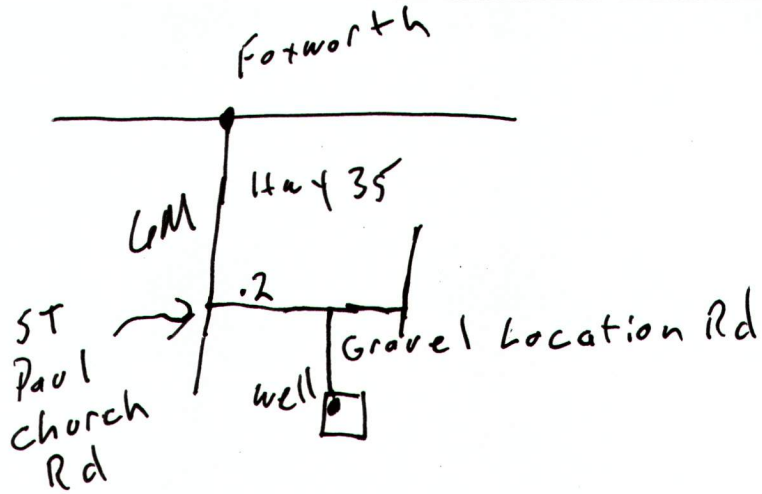 Foxworth
Hwy 35
6M
.2
ST
Paul
church
Rd
Gravel Location Rd
well